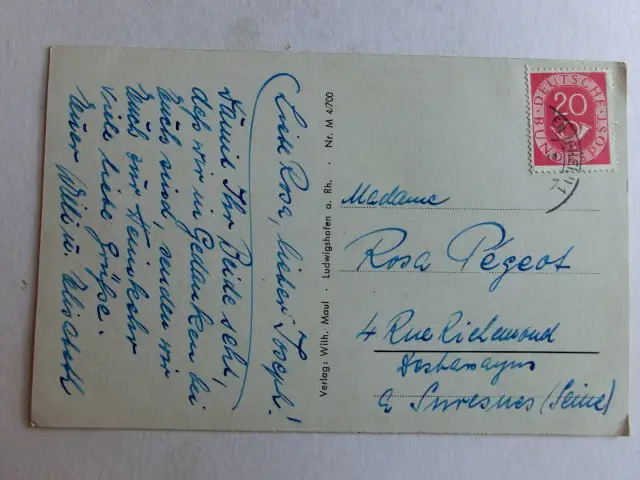 Liebe Rosa, lieber Joseph!
Damit Ihr Beide seht,
daß wir in Gedanken bei
Euch sind, senden wir
Euch zur Heimkehr
viele liebe Grüße.
Euer Willi u. Elisabeth
Verlag: Wilh. Maul · Ludwigshafen a. Rh. · Nr. M 4/700
DEUTSCHE BUNDESPOST
20
Madame
Rosa Pégeot
4 Rue Richemond
à Suresnes (Seine)